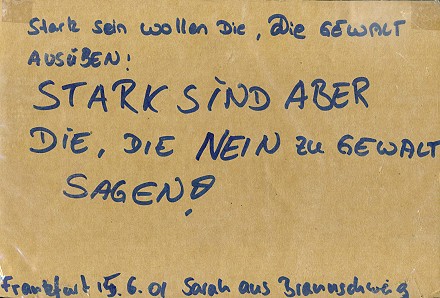 Stark sein wollen Die, Die GEWALT
AUSÜBEN!
STARK SIND ABER
DIE, DIE NEIN zu GEWALT
SAGEN!
Frankfurt 15.6.01 Sarah aus Braunschweig